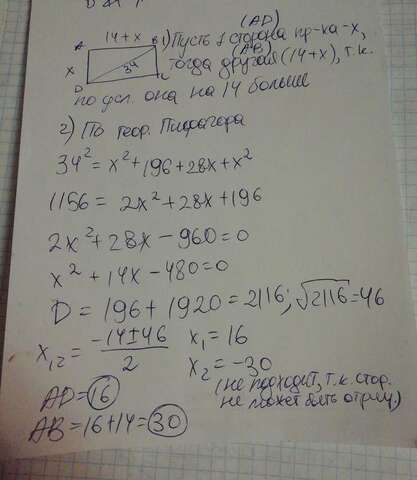 A 14 + x B 1) Пусть 1 сторона (AD) пр-ка - x,
x 34 тогда другая (AB) (14+x), т.к.
D C
по усл. она на 14 больше
2) По теор. Пифагора
34² = x² + 196 + 28x + x²
1156 = 2x² + 28x + 196
2x² + 28x - 960 = 0
x² + 14x - 480 = 0
D = 196 + 1920 = 2116; √2116 = 46
x₁,₂ = (-14 ± 46)/2 x₁ = 16
x₂ = -30
(не подходит, т.к. стор.
не может быть отриц.)
AD = 16
AB = 16 + 14 = 30